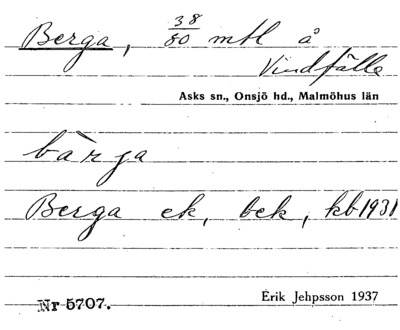 Berga, 38/80 mtl å
Vindfälle
Asks sn., Onsjö hd., Malmöhus län
bàrja
Berga ek, bek, kb 1931
Nr 5707.
Erik Jehpsson 1937